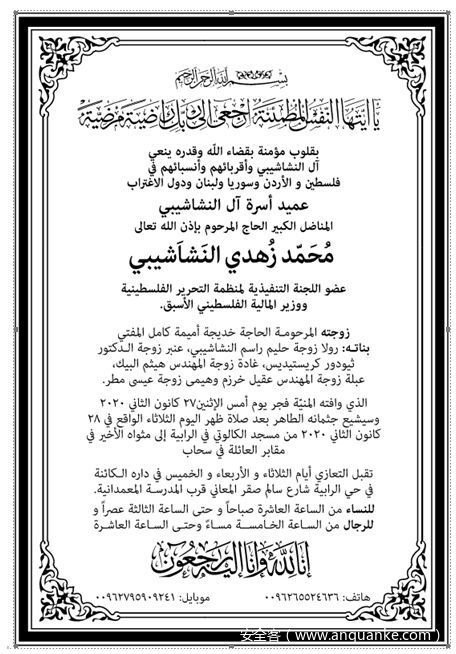 بسم الله الرحمن الرحيم
يا أيتها النفس المطمئنة ارجعي إلى ربك راضية مرضية
بقلوب مؤمنة بقضاء الله وقدره ينعي
آل النشاشيبي وأقربائهم وأنسبائهم في
فلسطين و الأردن وسوريا ولبنان ودول الاغتراب
عميد أسرة آل النشاشيبي
المناضل الكبير الحاج المرحوم بإذن الله تعالى
مُحَمّد زُهدي النَشاَشيبي
عضو اللجنة التنفيذية لمنظمة التحرير الفلسطينية
ووزير المالية الفلسطيني الأسبق.
زوجته المرحومـة الحاجة خديجة أميمة كامل المفتي
بناتـه: رولا زوجة حليم راسم النشاشيبي، عنبر زوجة الـدكتور
ثيودور كريستيديس، غادة زوجة المهندس هيثم البيك،
عبلة زوجة المهندس عقيل خرزم وهيمى زوجة عيسى مطر.
الذي وافته المنيّة فجر يوم أمس الإثنين٢٧ كانون الثاني ٢٠٢٠
وسيشيع جثمانه الطاهر بعد صلاة ظهر اليوم الثلاثاء الواقع في ٢٨
كانون الثاني ٢٠٢٠ من مسجد الكالوتي في الرابية إلى مثواه الأخير في
مقابر العائلة في سحاب
تقبل التعازي أيام الثلاثاء و الأربعاء و الخميس في داره الـكائنة
في حي الرابية شارع سالم صقر المعاني قرب المدرسـة المعمدانية.
للنساء من الساعة العاشرة صباحاً و حتى الساعة الثالثة عصراً و
للرجال من الساعة الخامسـة مساءً وحتـى الساعة العاشـرة
إنا لله وإنا إليه راجعون
هاتف: ٠٠٩٦٢٦٥٥٢٤٦٣٦ موبايل: ٠٠٩٦٢٧٩٥٩٠٩٢٤١
安全客（www.anquanke.com）